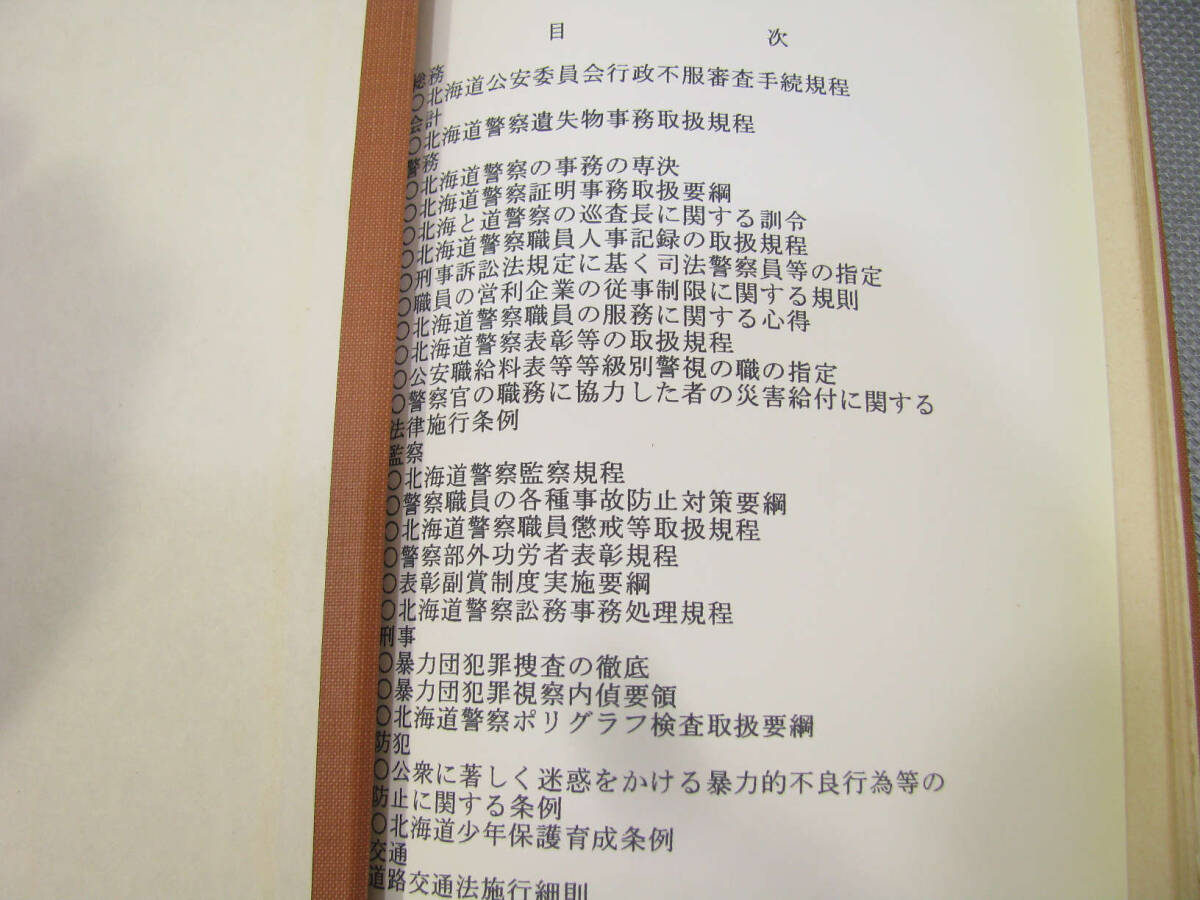 目次
総務
○北海道公安委員会行政不服審査手続規程
会計
○北海道警察遺失物事務取扱規程
警務
○北海道警察の事務の専決
○北海道警察証明事務取扱要綱
○北海と道警察の巡査長に関する訓令
○北海道警察職員人事記録の取扱規程
○刑事訴訟法規定に基く司法警察員等の指定
○職員の営利企業の従事制限に関する規則
○北海道警察職員の服務に関する心得
○北海道警察表彰等の取扱規程
○公安職給料表等等級別警視の職の指定
○警察官の職務に協力した者の災害給付に関する
法律施行条例
監察
○北海道警察監察規程
○警察職員の各種事故防止対策要綱
○北海道警察職員懲戒等取扱規程
○警察部外功労者表彰規程
○表彰副賞制度実施要綱
○北海道警察訟務事務処理規程
刑事
○暴力団犯罪捜査の徹底
○暴力団犯罪視察内偵要領
○北海道警察ポリグラフ検査取扱要綱
防犯
○公衆に著しく迷惑をかける暴力的不良行為等の
防止に関する条例
○北海道少年保護育成条例
交通
道路交通法施行細則